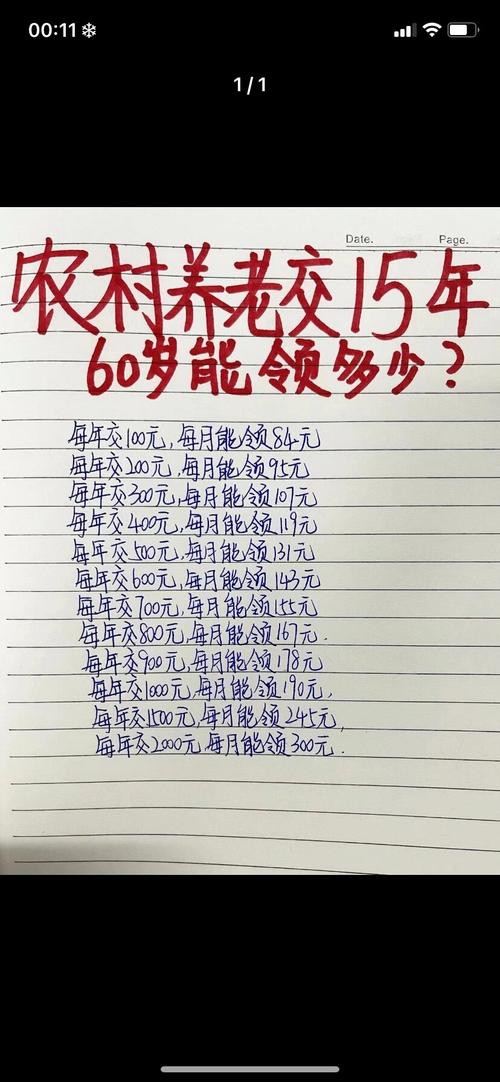 00:11
1/1
Date. Page.
农村养老交15年
60岁能领多少?
每年交100元,每月能领84元
每年交200元,每月能领95元
每年交300元,每月能领107元
每年交400元,每月能领119元
每年交500元,每月能领131元
每年交600元,每月能领143元
每年交700元,每月能领155元
每年交800元,每月能领167元.
每年交900元,每月能领178元
每年交1000元,每月能领190元,
每年交1500元,每月能领245元,
每年交2000元,每月能领300元.